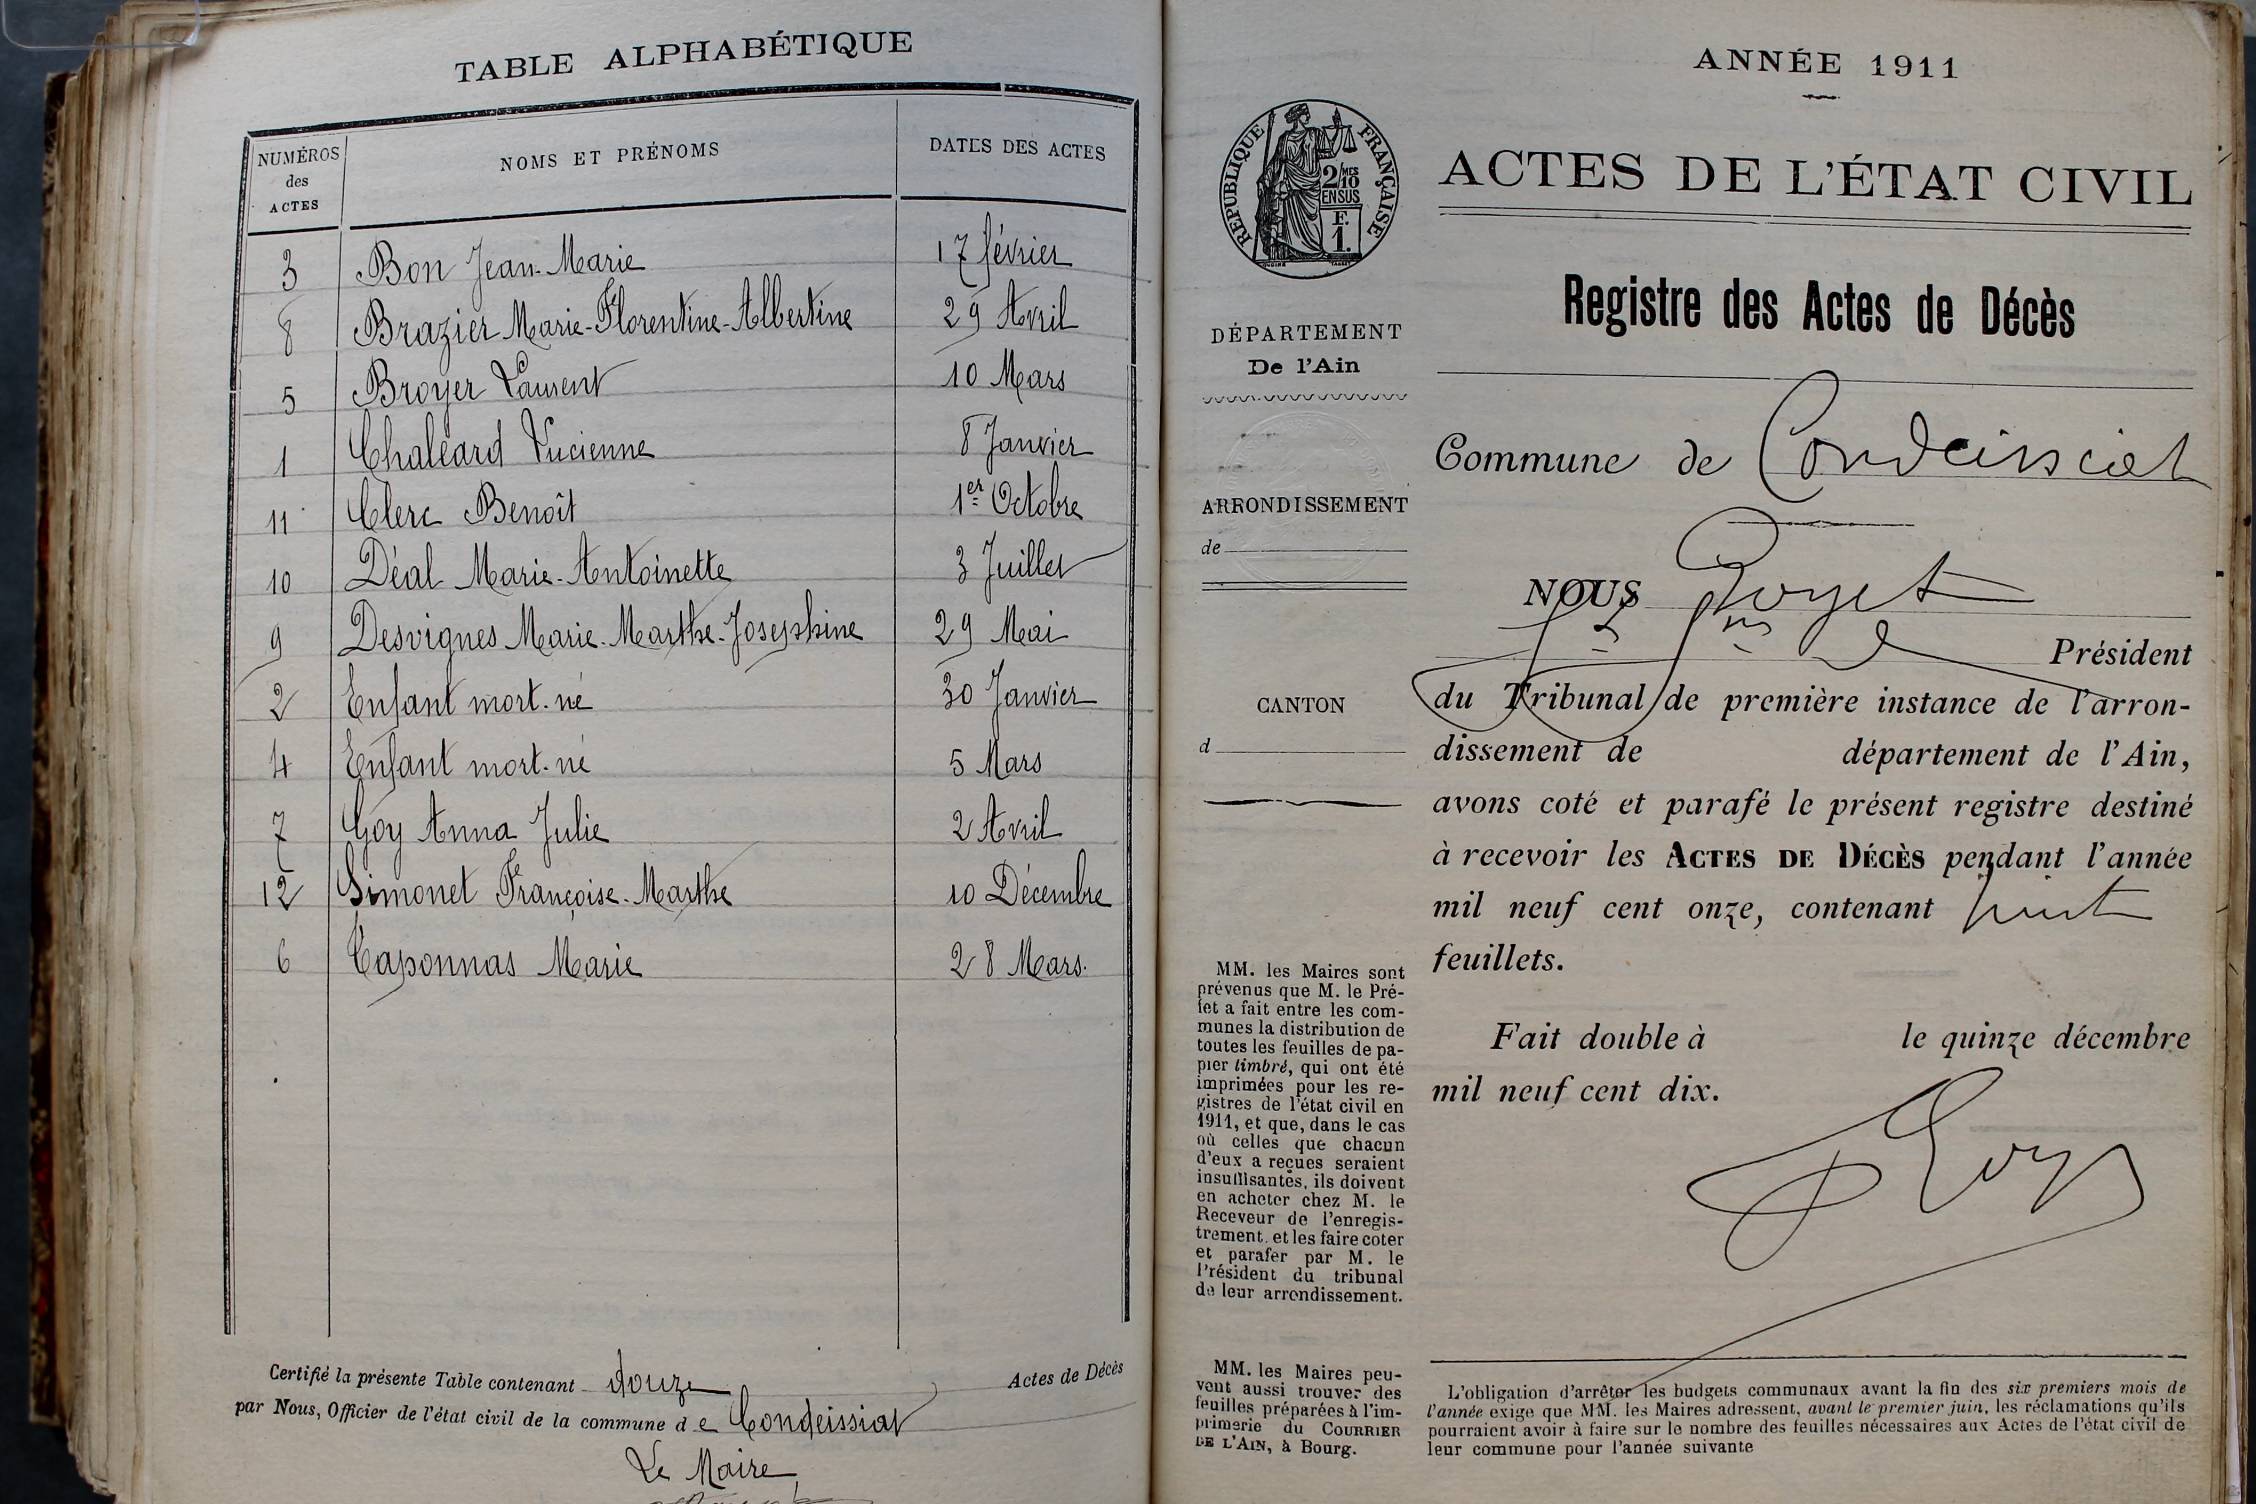 TABLE ALPHABÉTIQUE
NUMÉROS des ACTES NOMS ET PRÉNOMS DATES DES ACTES
3 Bon Jean-Marie 17 février
8 Brazier Marie-Florentine-Albertine 29 Avril
5 Broyer Laurent 10 Mars
1 Chaléard Lucienne 8 Janvier
11 Clerc Benoît 1er Octobre
10 Déal Marie-Antoinette 3 Juillet
9 Desvignes Marie-Marthe-Josephine 29 Mai
2 Enfant mort-né 30 Janvier
4 Enfant mort-né 5 Mars
7 Goy Anna Julie 2 Avril
12 Simonet Françoise-Marthe 10 Décembre
6 Taponnas Marie 28 Mars.
Certifié la présente Table contenant douze Actes de Décès
par Nous, Officier de l'état civil de la commune de Condeissiat
Le Maire
ANNÉE 1911
RÉPUBLIQUE FRANÇAISE
2/10 MES
EN SUS
F.
1.
ACTES DE L'ÉTAT CIVIL
Registre des Actes de Décès
DÉPARTEMENT
De l'Ain
ARRONDISSEMENT
de
CANTON
d
MM. les Maires sont
prévenus que M. le Pré-
fet a fait entre les com-
munes la distribution de
toutes les feuilles de pa-
pier timbré, qui ont été
imprimées pour les re-
gistres de l'état civil en
1911, et que, dans le cas
où celles que chacun
d'eux a reçues seraient
insuffisantes, ils doivent
en acheter chez M. le
Receveur de l'enregis-
trement, et les faire coter
et parafer par M. le
Président du tribunal
de leur arrondissement.
MM. les Maires peu-
vent aussi trouver des
feuilles préparées à l'im-
primerie du COURRIER
DE L'AIN, à Bourg.
Commune de Condeissiat
NOUS
Président
du Tribunal de première instance de l'arron-
dissement de département de l'Ain,
avons coté et parafé le présent registre destiné
à recevoir les ACTES DE DÉCÈS pendant l'année
mil neuf cent onze, contenant huit
feuillets.
Fait double à le quinze décembre
mil neuf cent dix.
L'obligation d'arrêter les budgets communaux avant la fin des six premiers mois de
l'année exige que MM. les Maires adressent, avant le premier juin, les réclamations qu'ils
pourraient avoir à faire sur le nombre des feuilles nécessaires aux Actes de l'état civil de
leur commune pour l'année suivante